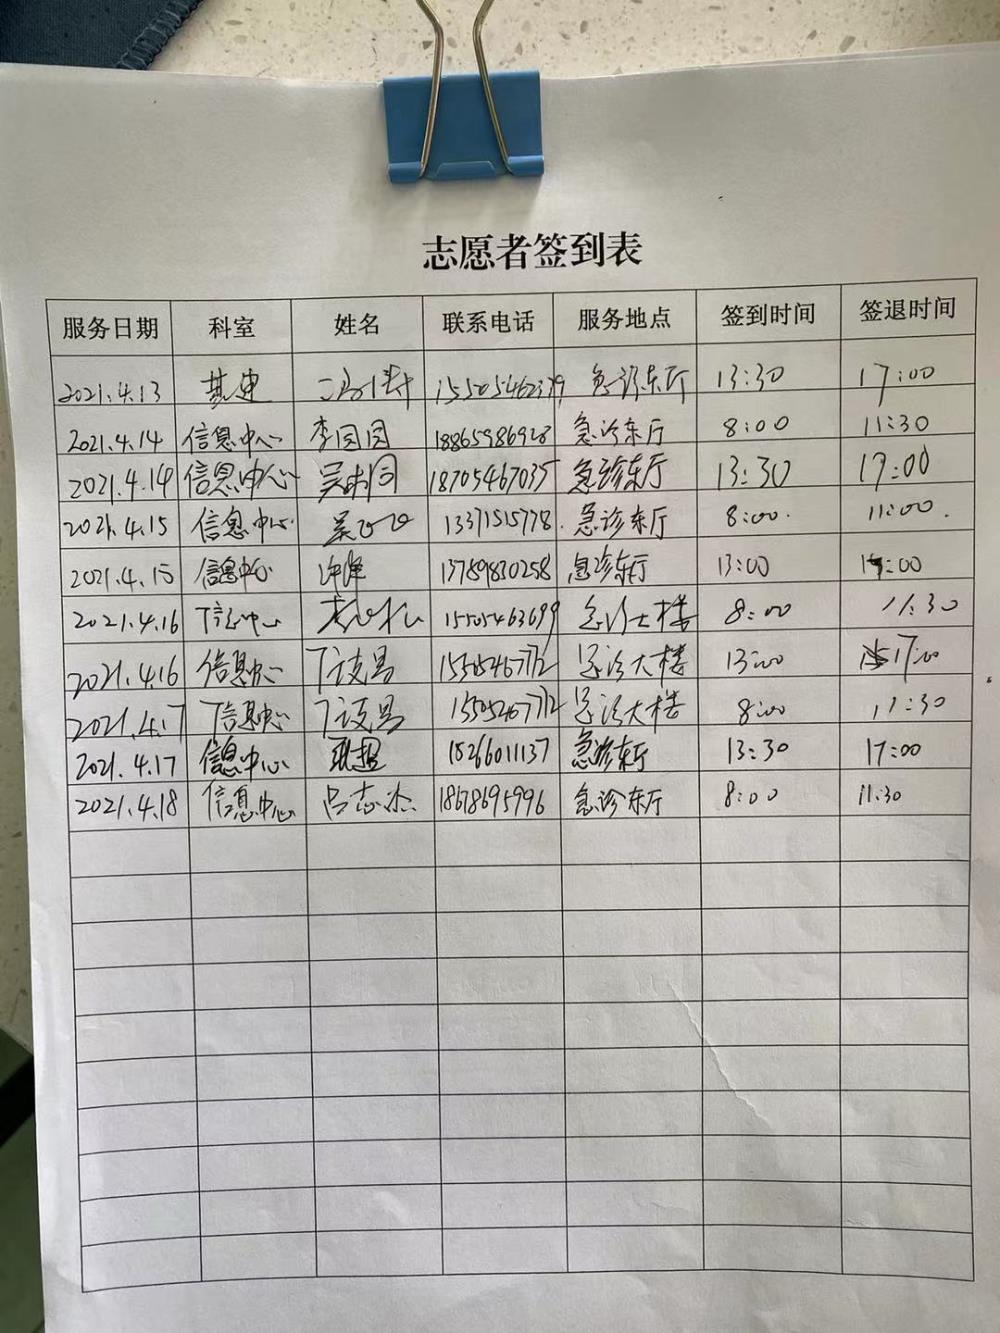 志愿者签到表
服务日期 科室 姓名 联系电话 服务地点 签到时间 签退时间
2021.4.13 基建 15505462379 急诊东厅 13:30 17:00
2021.4.14 信息中心 李园园 18865986928 急诊东厅 8:00 11:30
2021.4.14 信息中心 18705467035 急诊东厅 13:30 17:00
2021.4.15 信息中心 13371515778. 急诊东厅 8:00. 11:00.
2021.4.15 信息中心 17789830258 急诊东厅 13:00 17:00
2021.4.16 信息中心 15505463699 急诊大楼 8:00 11:30
2021.4.16 信息中心 15505467712 急诊大楼 13:00 17:00
2021.4.17 信息中心 15505467712 急诊大楼 8:00 11:30
2021.4.17 信息中心 15266011137 急诊东厅 13:30 17:00
2021.4.18 信息中心 吕志杰 18678695996 急诊东厅 8:00 11:30